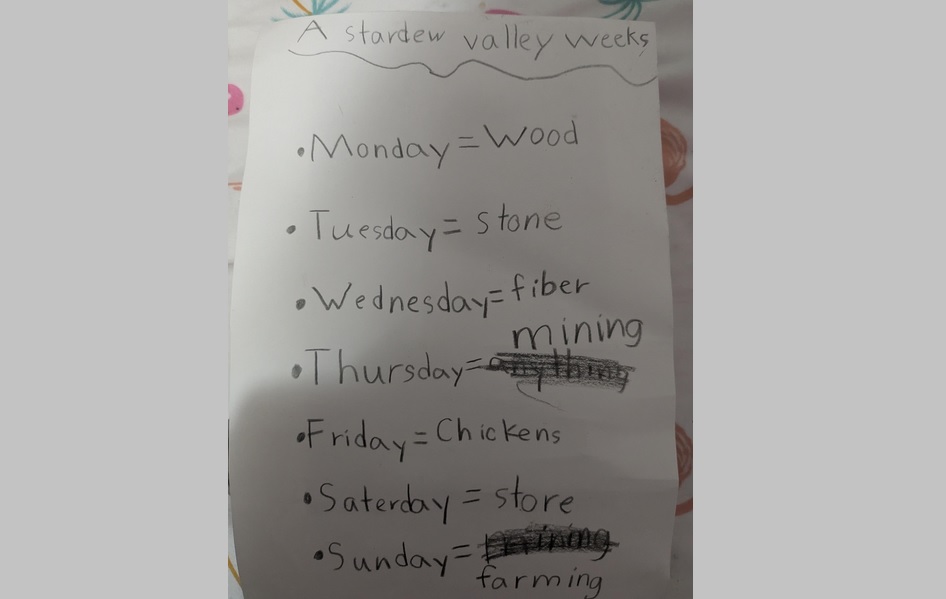 A stardew valley weeks
• Monday = Wood
• Tuesday = stone
• Wednesday = fiber
mining
• Thursday = anything
• Friday = Chickens
• Saterday = store
• Sunday = mining
farming